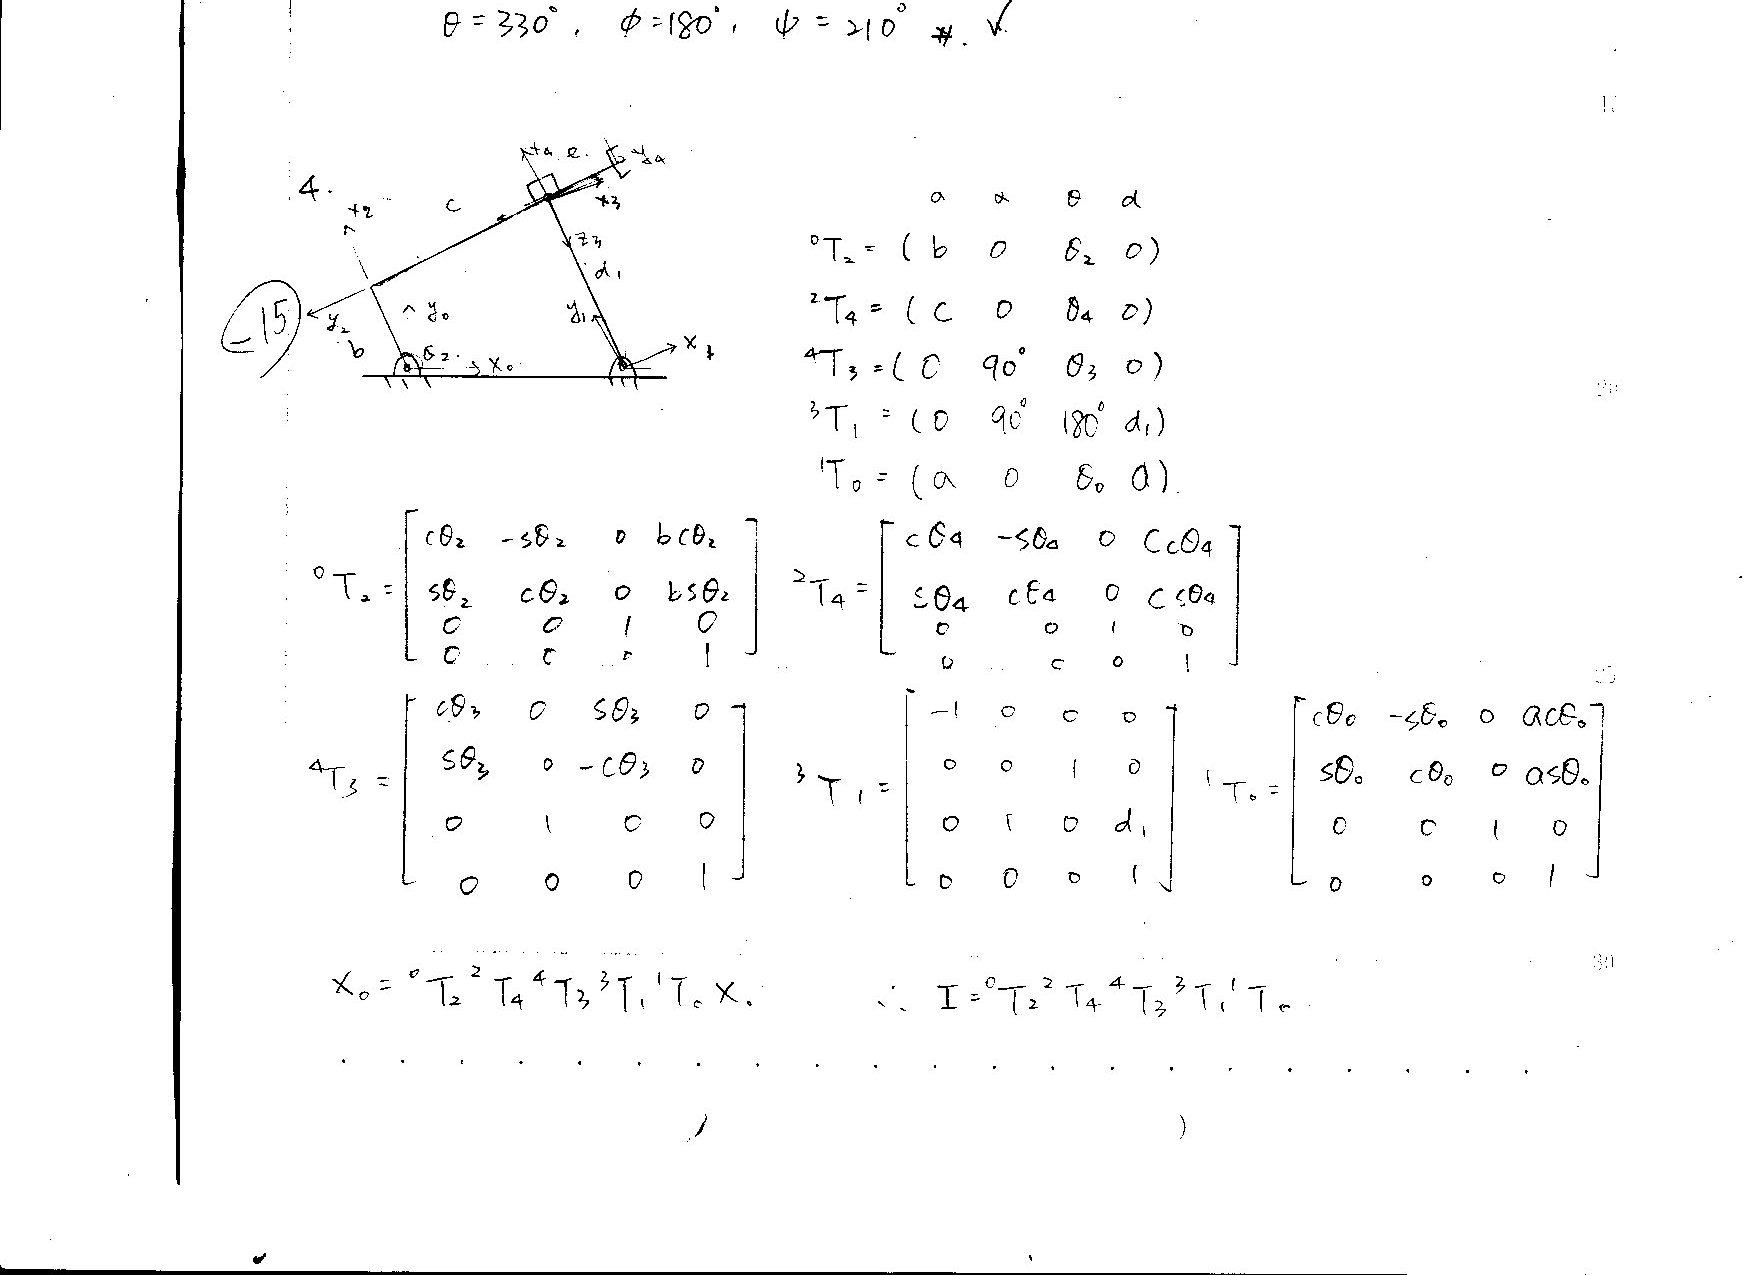 θ = 330°, φ = 180°, ψ = 210° #. ✓
4.
x4 e. y4
c x3
x2
z3
d1
-15 y2 y0 y1
b θ2 x0 x1
a α θ d
⁰T₂ = ( b 0 θ₂ 0 )
²T₄ = ( c 0 θ₄ 0 )
⁴T₃ = ( 0 90° θ₃ 0 )
³T₁ = ( 0 90° 180° d₁ )
¹T₀ = ( a 0 θ₀ 0 ).
⁰T₂ = [ cθ₂ -sθ₂ 0 bcθ₂ ; sθ₂ cθ₂ 0 bsθ₂ ; 0 0 1 0 ; 0 0 0 1 ] ²T₄ = [ cθ₄ -sθ₄ 0 Ccθ₄ ; sθ₄ cθ₄ 0 Csθ₄ ; 0 0 1 0 ; 0 0 0 1 ]
⁴T₃ = [ cθ₃ 0 sθ₃ 0 ; sθ₃ 0 -cθ₃ 0 ; 0 1 0 0 ; 0 0 0 1 ] ³T₁ = [ -1 0 0 0 ; 0 0 1 0 ; 0 1 0 d₁ ; 0 0 0 1 ] ¹T₀ = [ cθ₀ -sθ₀ 0 acθ₀ ; sθ₀ cθ₀ 0 asθ₀ ; 0 0 1 0 ; 0 0 0 1 ]
X₀ = ⁰T₂ ²T₄ ⁴T₃ ³T₁ ¹T₀ X₀ ∴ I = ⁰T₂ ²T₄ ⁴T₃ ³T₁ ¹T₀